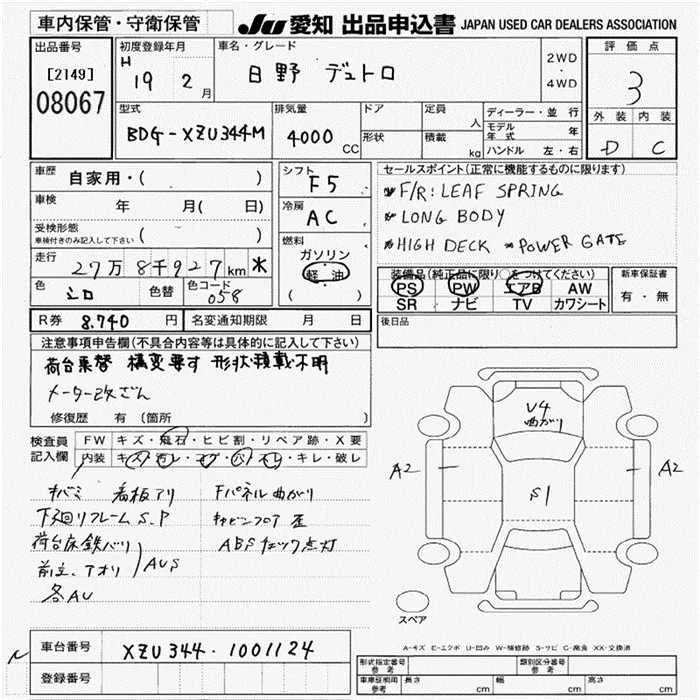 車内保管・守衛保管
JU 愛知 出品申込書 JAPAN USED CAR DEALERS ASSOCIATION
出品番号
[2149]
08067
初度登録年月
H 19 2月
車名・グレード
日野 デュトロ
2WD
・
4WD
評価点
3
外装 内装
D C
型式
BDG-XZU344M
排気量
4000 CC
ドア
形状
定員 人
積載 kg
ディーラー・並行
モデル年式 年
ハンドル 左・右
車歴 自家用・( )
車検 年 月( 日)
受検形態
車検付きのみ記入して下さい ( )
走行 27万8千927km ※
色 シロ 色替 色コード 058
シフト F5
冷房 AC
燃料
ガソリン
・
軽油
( )
セールスポイント(正常に機能するものに限ります)
F/R: LEAF SPRING
LONG BODY
HIGH DECK POWER GATE
装備品(純正品に限り○をつけてください)
PS PW エアB AW
SR ナビ TV カワシート
新車保証書
有・無
後日品
R券 8,740 円 名変通知期限 月 日
注意事項申告欄(不具合内容等は具体的に記入して下さい)
荷台乗替 構変要す 形状積載不明
メーター改ざん
修復歴 有(箇所 )
検査員
記入欄
FW キズ・飛石・ヒビ割・リペア跡・X要
内装 キズ・汚レ・コゲ・穴・スレ・キレ・破レ
キバミ 看板アリ Fパネル曲がり
下廻リフレームS.P キャビンフロア 歪
荷台床鉄バリ ABSチェック点灯
前立、アオリ AUS
各AU
U4
曲がり
A2 A2
S1
スペア
A-キズ E-エクボ U-凹み W-補修跡 S-サビ C-腐食 XX-交換済
車台番号 XZU344-1001124
登録番号
形式指定番号
参考
類別区分番号
参考
車庫証明用
参考
長さ cm 幅 cm 高さ cm